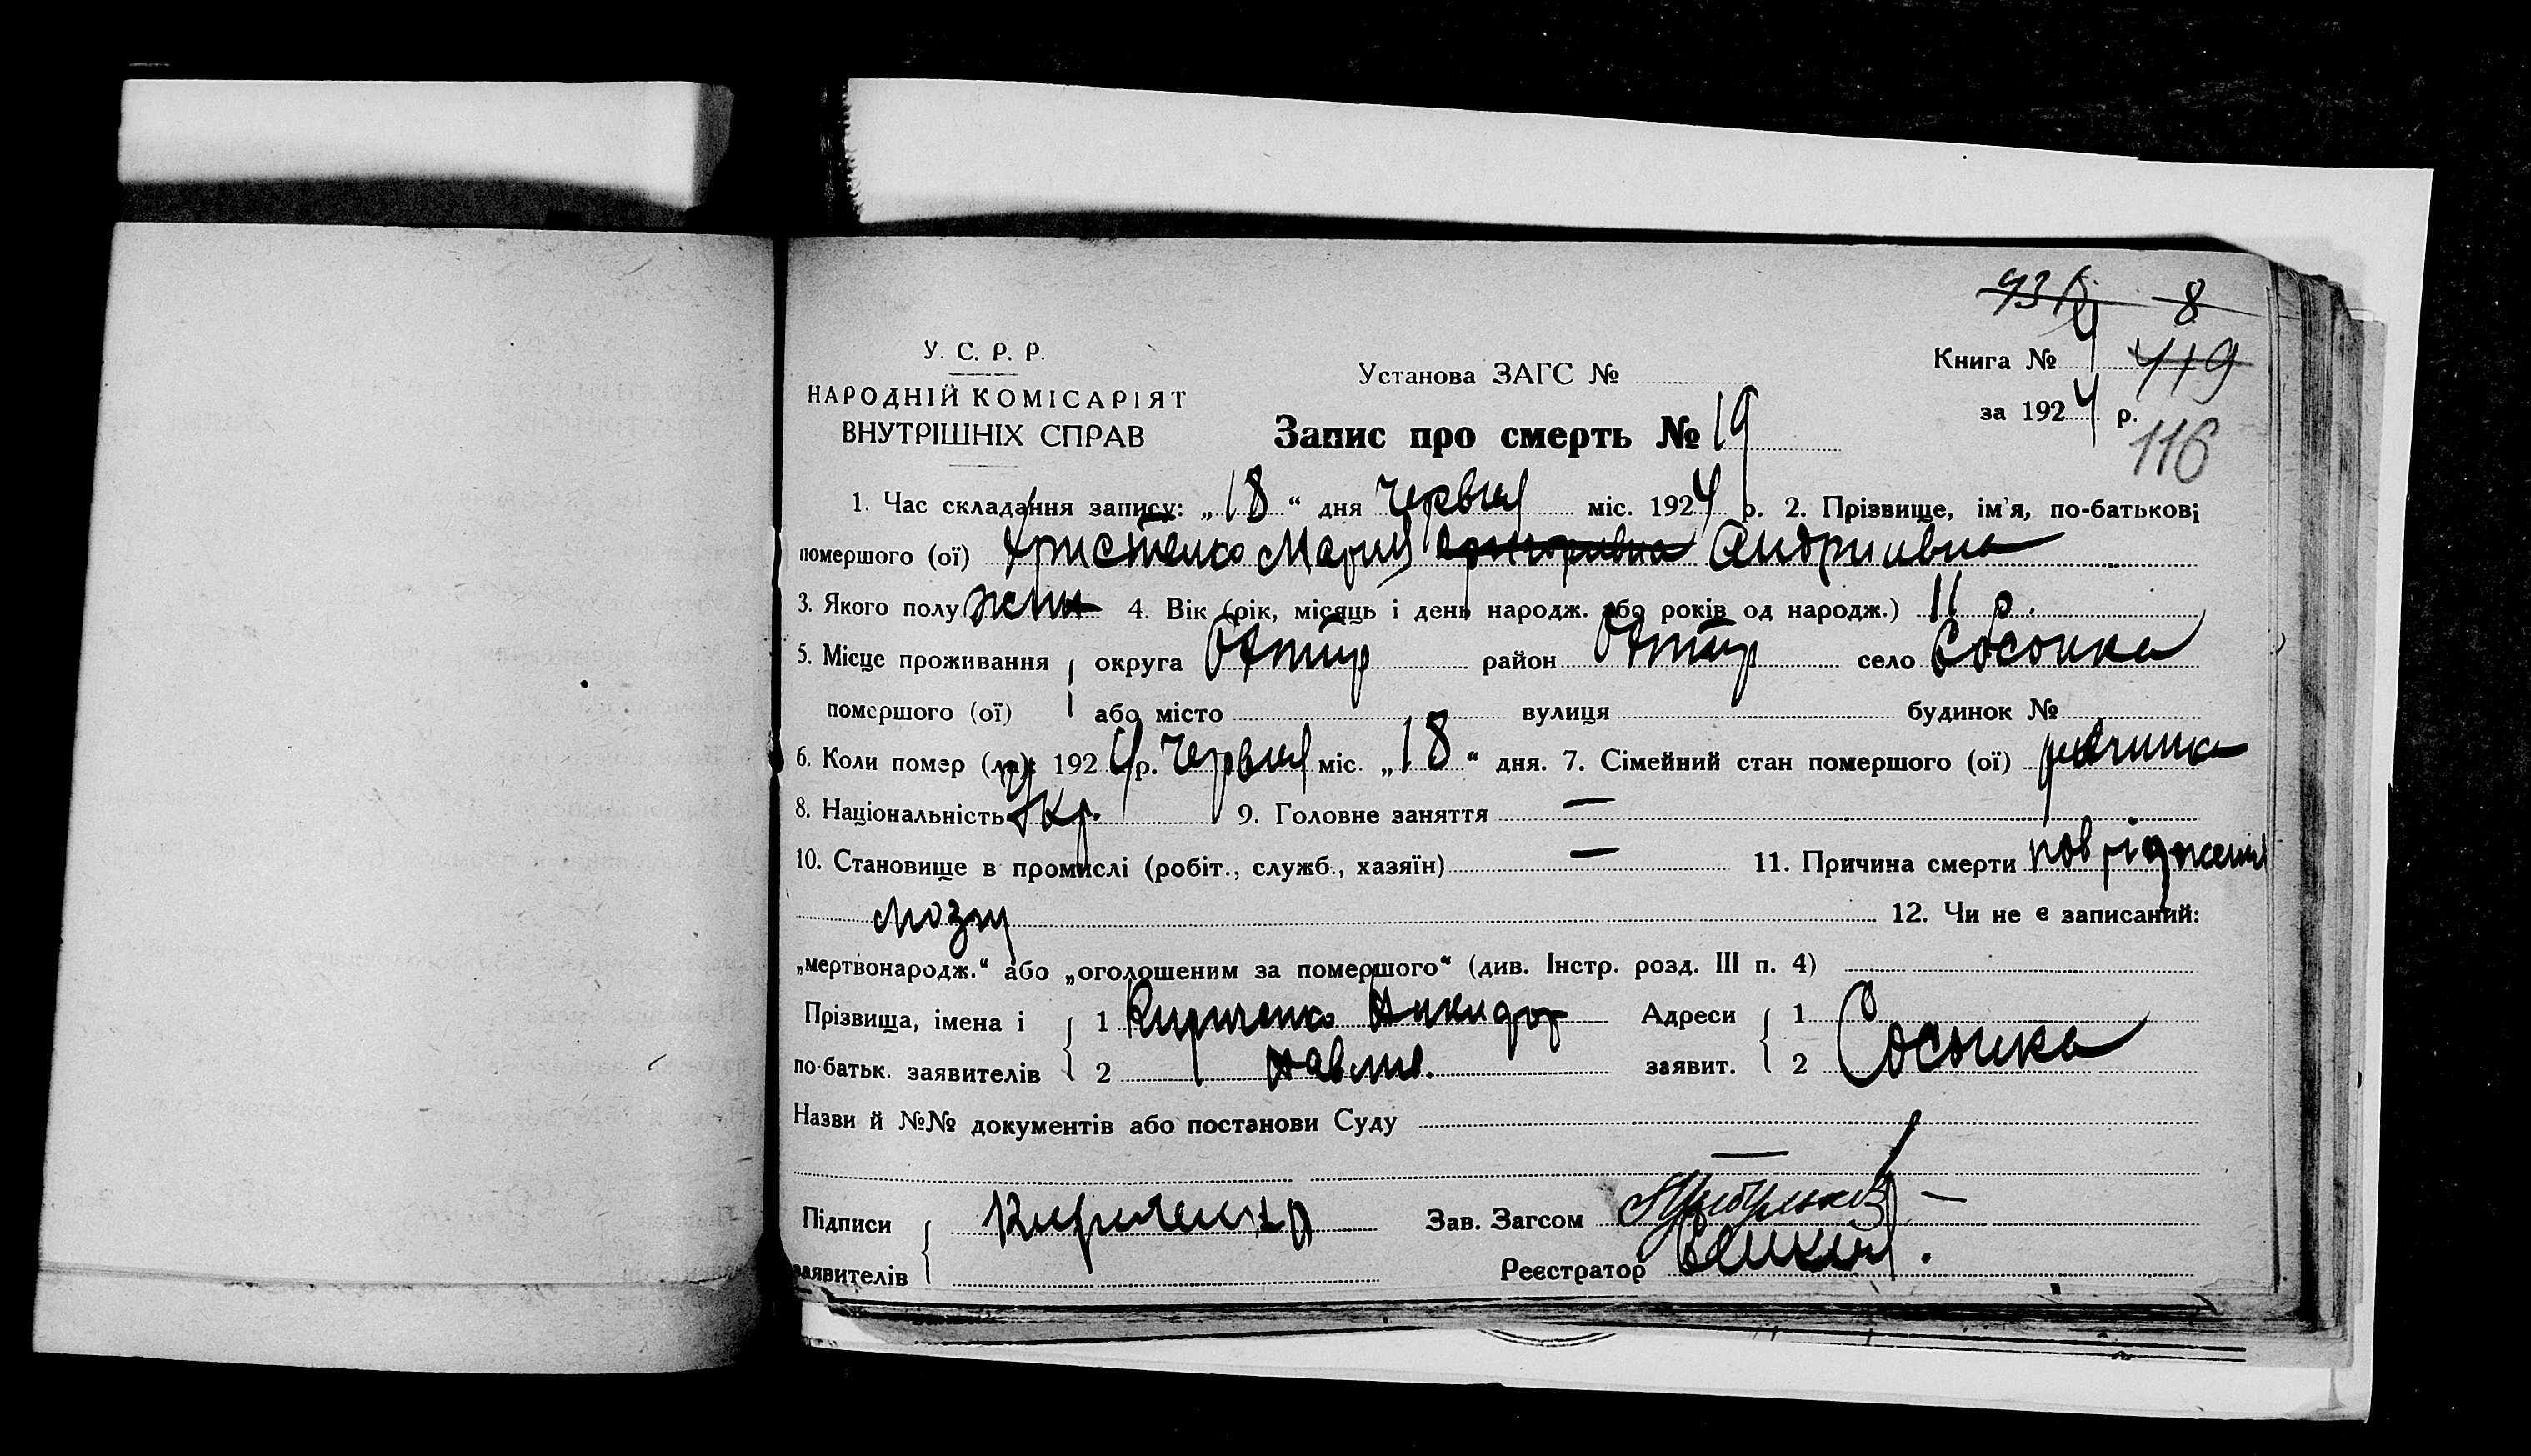 8
У. С. Р. Р.
НАРОДНІЙ КОМІСАРІЯТ
ВНУТРІШНІХ СПРАВ
Установа ЗАГС №
Книга № 4 419
за 1924 р.
116
Запис про смерть № 19
1. Час складання запису: „18“ дня червня міс. 1924 р. 2. Прізвище, ім'я, по-батькові
помершого (ої) Христенко Мария Андриивна
3. Якого полу жін 4. Вік (рік, місяць і день народж. або років од народж.) 11 р.
5. Місце проживання округа Охтир район Охтир село Сосонка
помершого (ої) або місто вулиця будинок №
6. Коли помер (ла): 1924 р. червня міс. „18“ дня. 7. Сімейний стан помершого (ої)
8. Національність Укр. 9. Головне заняття —
10. Становище в промислі (робіт., служб., хазяїн) — 11. Причина смерти повріджения
мозгу 12. Чи не є записаний:
„мертвонародж.“ або „оголошеним за помершого“ (див. Інстр. розд. III п. 4)
Прізвища, імена і 1 Кириченко Никидор Адреси 1
по-батьк. заявителів 2 Павлов. заявит. 2 Сосонка
Назви й №№ документів або постанови Суду
—
Підписи Кириченко Зав. Загсом
заявителів Реєстратор